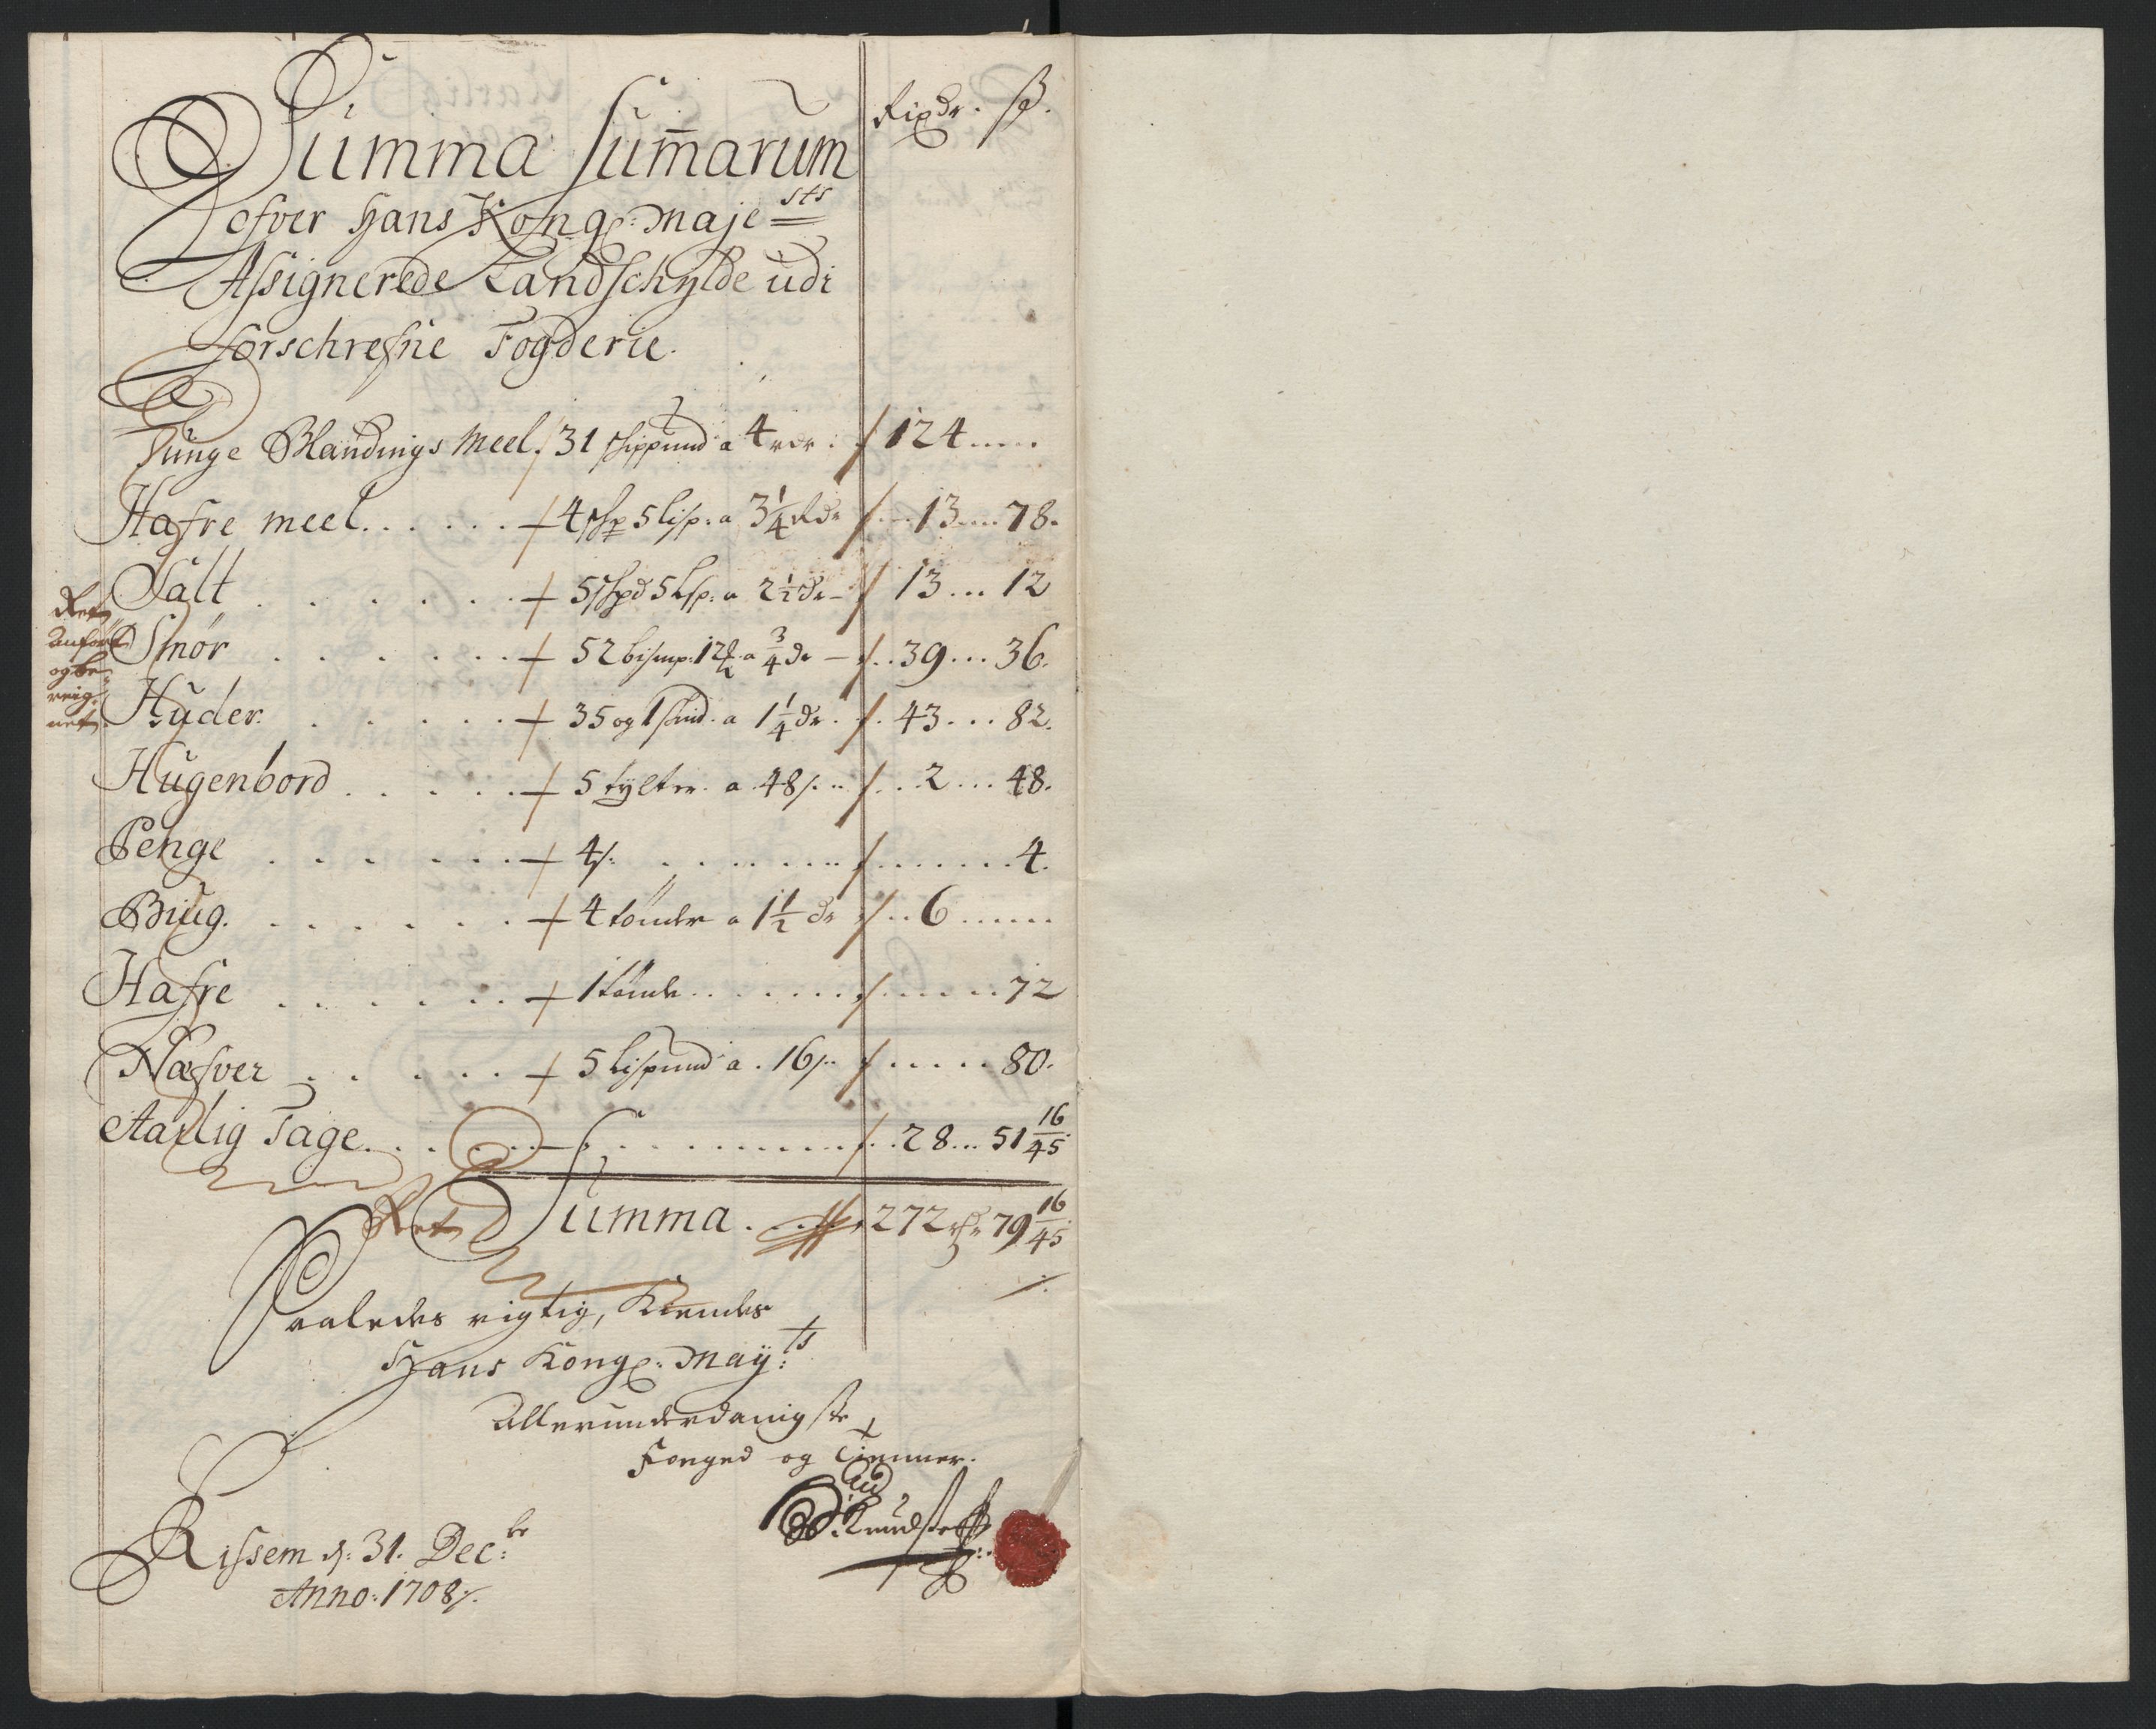 Rixdr. ß.
Summa Sum̄arum
ofver Hans Kong: Maje sts
Assignerede Landschylde udi
forschrefne Fogderie.
Tunge Blandings Meel. 31 skippund a 4 rdr. 124
Hafre meel. 4 skp 5 lisp: a 3 1/4 Rdr 13 78.
Salt 5 skpd 5 Lsp: a 2 1/2 dr 13 12
Smør 52 bismp: 12 a 3/4 dr 39 36.
Huder. 35 og 1 skind. a 1 1/4 dr. 43 82.
Hugenbord 5 tylter a 48 s. 2 48.
Penge 4 s. 4.
Biug. 4 tønder a 1 1/2 dr 6
Hafre 1 tønde 72
Næfver 5 Lispund a 16 s. 80.
Aarlig Tage. 28 51 16/45
Ret
Anført
og be-
reig-
net
Ret Summa. 272 rdr 79 16/45
Saaledes rigtig, Kiendes
Hans Kong: May: ts
Allerunderdanigste
Foeged og Tienner.
Knudsen
Rissem d: 31. Dec: br
Anno: 1708.